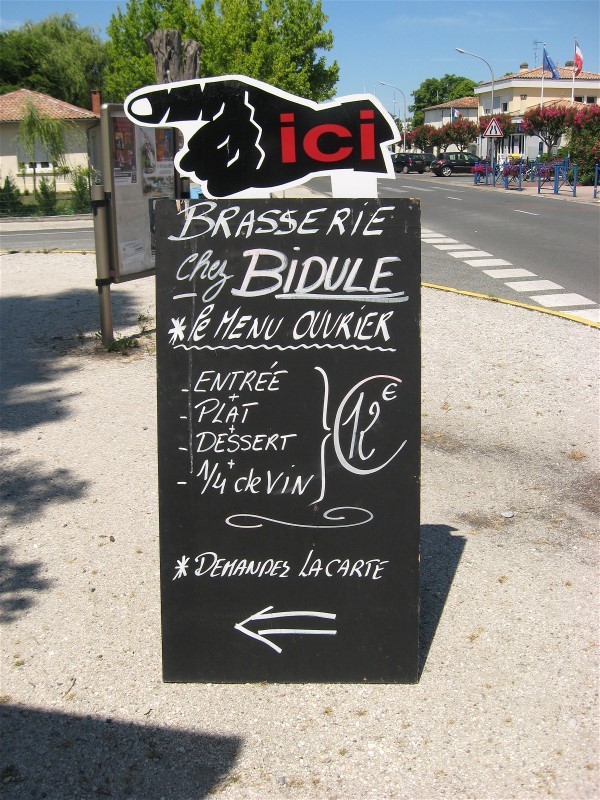 ici
BRASSERIE
chez BIDULE
* le MENU OUVRIER
- ENTRÉE
+
- PLAT
+
- DESSERT
+
- 1/4 de VIN
12€
* DEMANDEZ LA CARTE